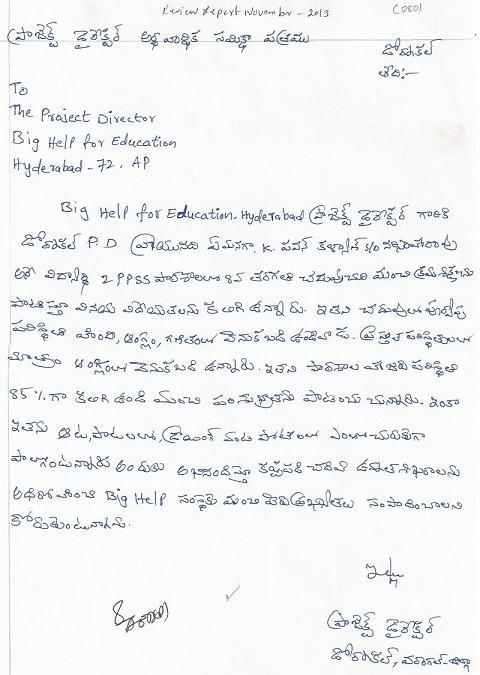 Review Report November - 2013
(080)
ప్రాజెక్ట్ డైరెక్టర్ అర్థవార్షిక సమీక్షా పత్రము
డోర్నకల్
తేది:-
To
The Project Director
Big Help for Education
Hyderabad - 72, AP
Big Help for Education-Hyderabad ప్రాజెక్ట్ డైరెక్టర్ గారికి
డోర్నకల్ P.D వ్రాయునది ఏమనగా, K. పవన్ కళ్యాణ్ S/o
అనే విద్యార్థి ZPPSS పాఠశాలలో 8వ తరగతి చదువుచూ మంచి క్రమశిక్షణను
పాటిస్తూ వినయ విధేయతలను కలిగి ఉన్నాడు. ఇతని చదువులో పూర్వపు
పరిస్థితి హిందీ, ఆంగ్లం, గణితంలో వెనుకబడి ఉండేవాడు. ప్రస్తుత పరిస్థితులలో
మాత్రం ఆంగ్లంలో వెనుకబడి ఉన్నాడు. ఇతని పాఠశాల హాజరు పరిస్థితి
85% గా కలిగి ఉండి మంచి పరిశుభ్రతను పాటించు చున్నాడు. ఇంకా
ఇతను ఆట, పాటలలో, డ్రాయింగ్ వంటి పోటీలలో ఎంతో చురుకుగా
పాల్గొంటున్నాడు అందుకు అభినందిస్తూ కష్టపడి చదివి ఉన్నత శిఖరాలను
అధిరోహించి Big Help సంస్థకు మంచి పేరు ప్రఖ్యాతులు సంపాదించాలని
కోరుకుంటున్నాను.
ఇట్లు
ప్రాజెక్ట్ డైరెక్టర్
డోర్నకల్, వరంగల్-జిల్లా